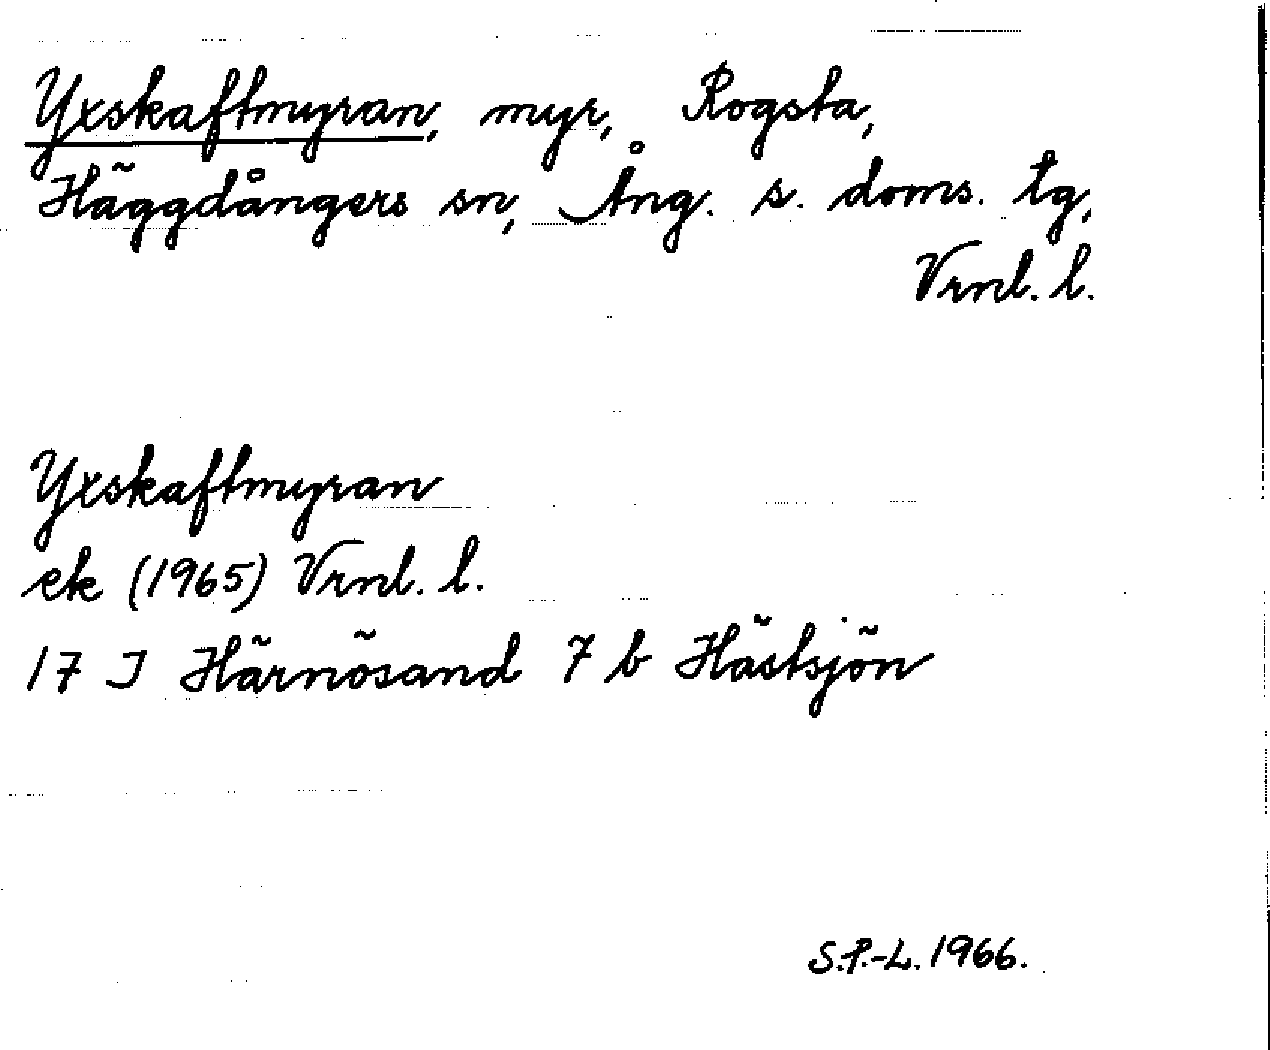 Yxskaftmyran, myr, Rogsta,
Häggdångers sn, Ång. s. doms. tg,
Vrnl. l.
Yxskaftmyran
ek (1965) Vrnl. l.
17 I Härnösand 7 b Hästsjön
S.P.-L. 1966.